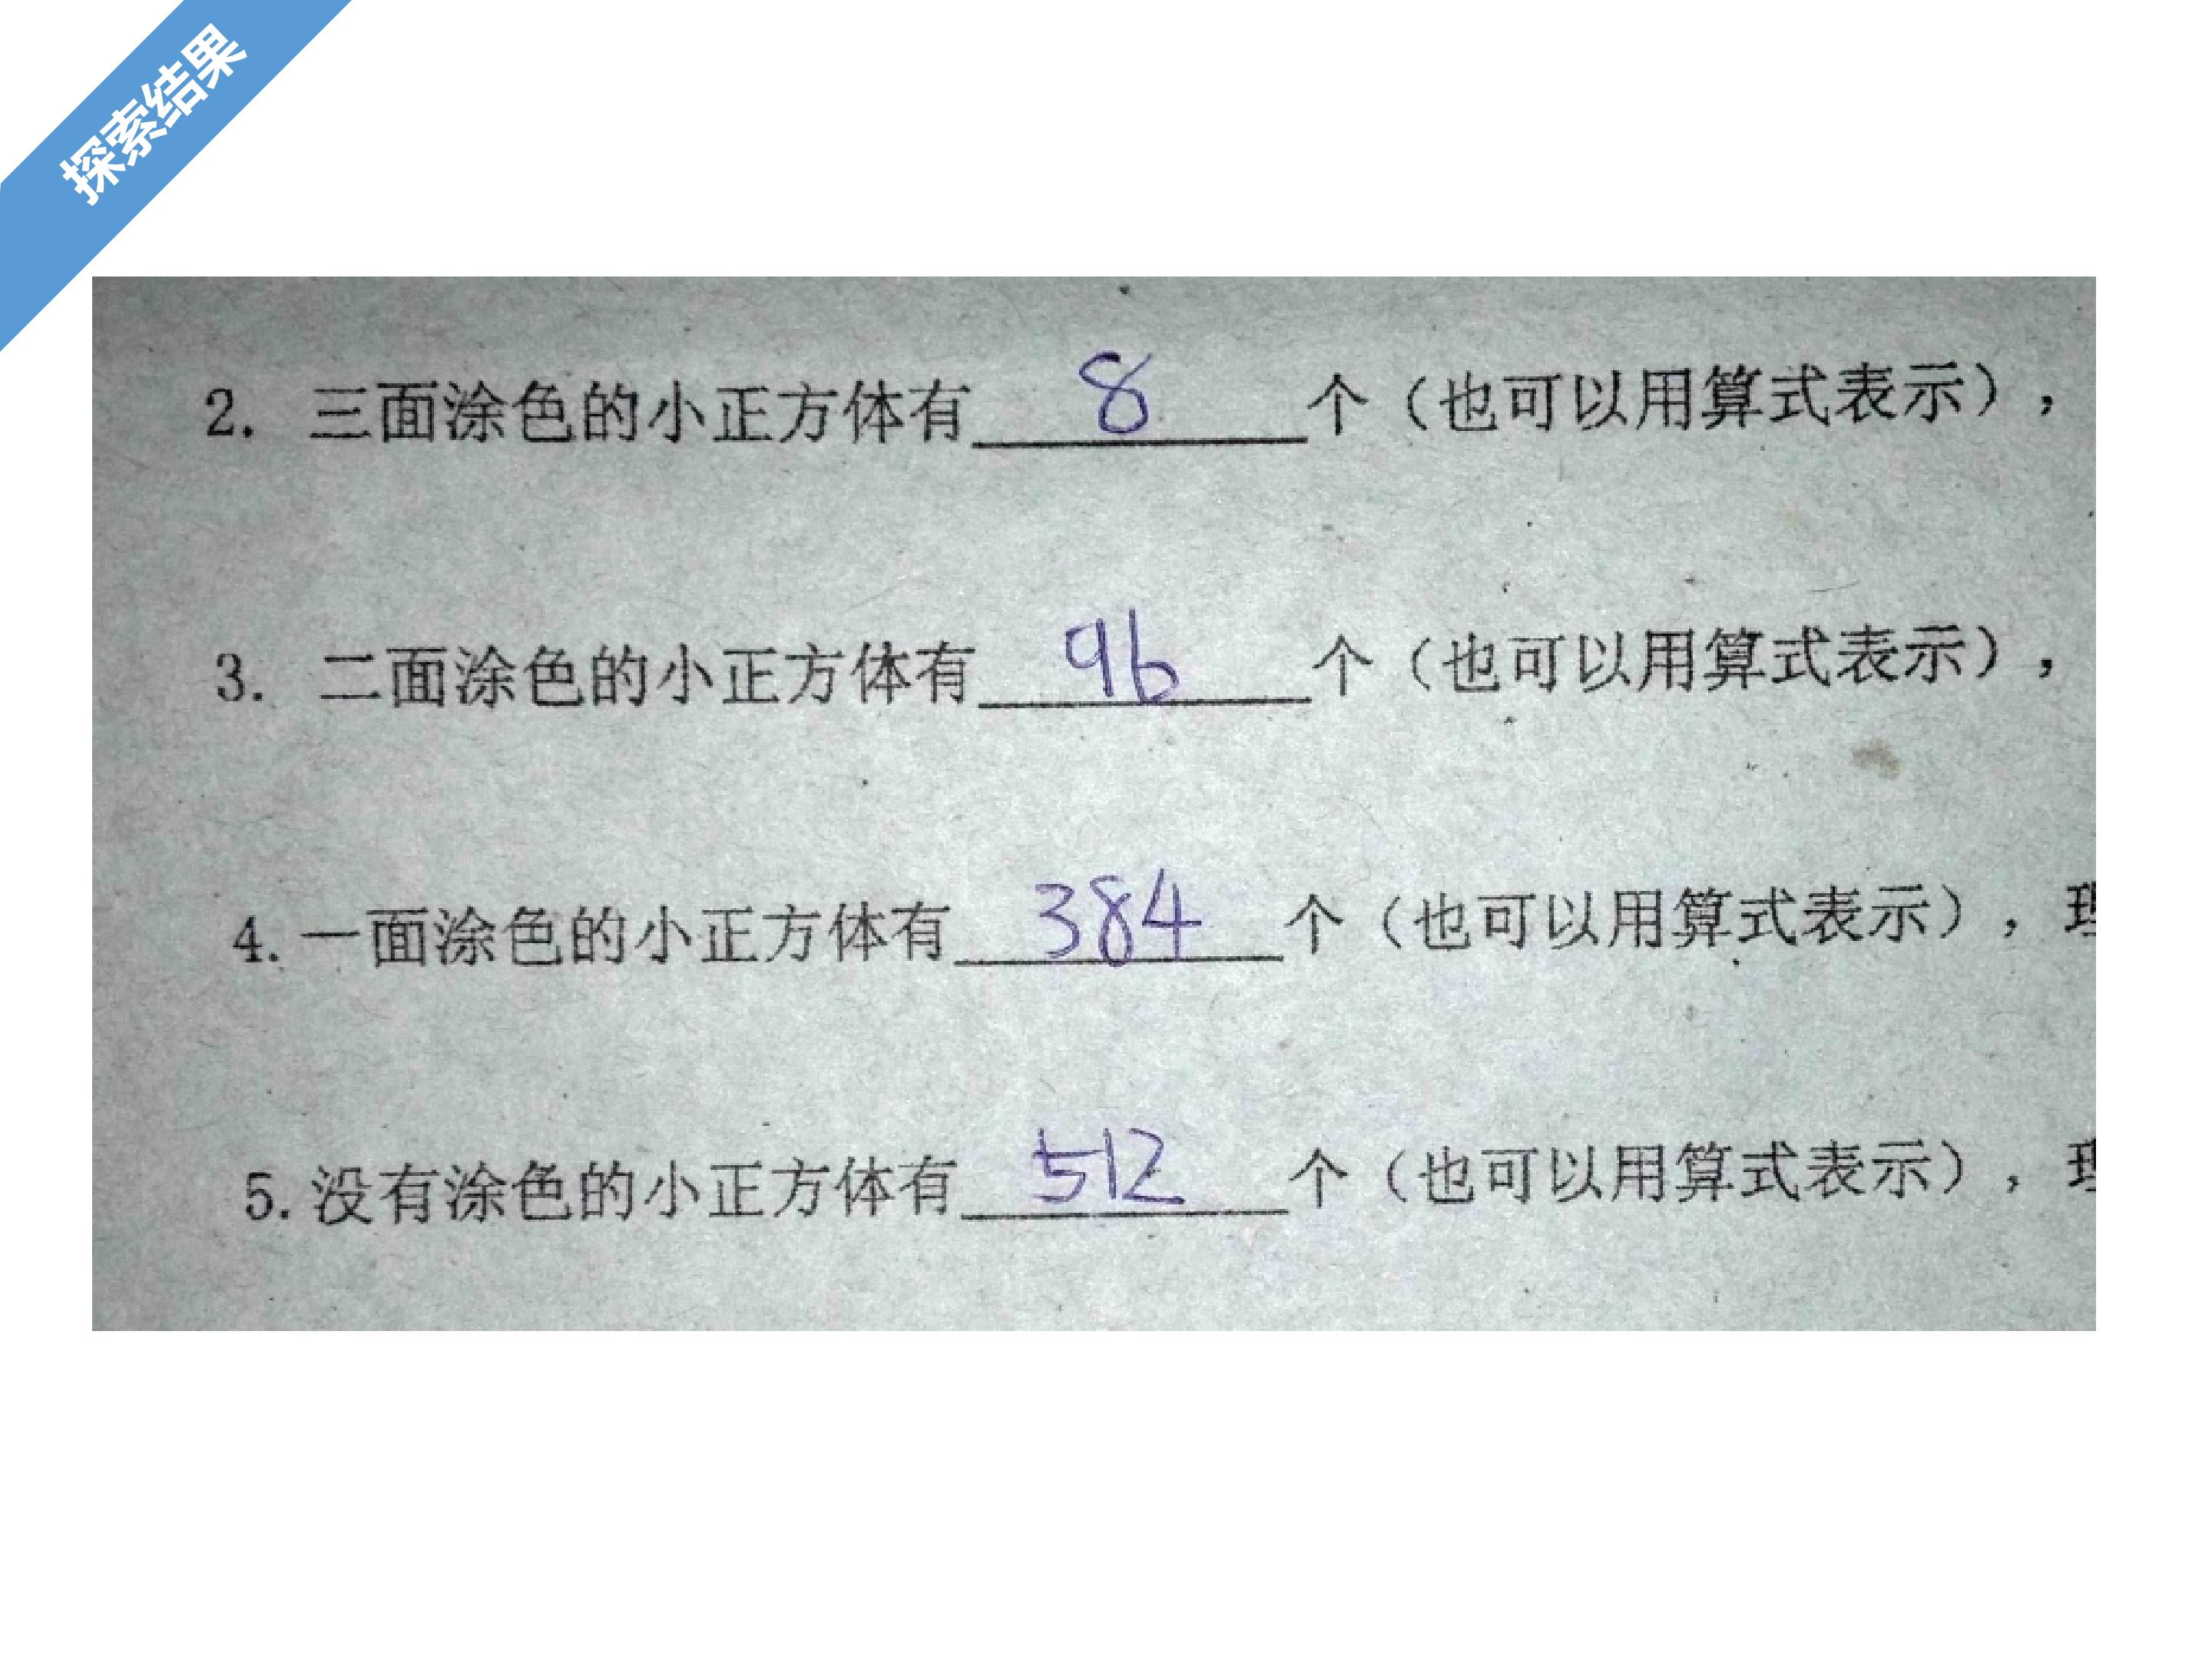 探索结果
2. 三面涂色的小正方体有 8 个（也可以用算式表示），
3. 二面涂色的小正方体有 96 个（也可以用算式表示），
4. 一面涂色的小正方体有 384 个（也可以用算式表示），
5. 没有涂色的小正方体有 512 个（也可以用算式表示），